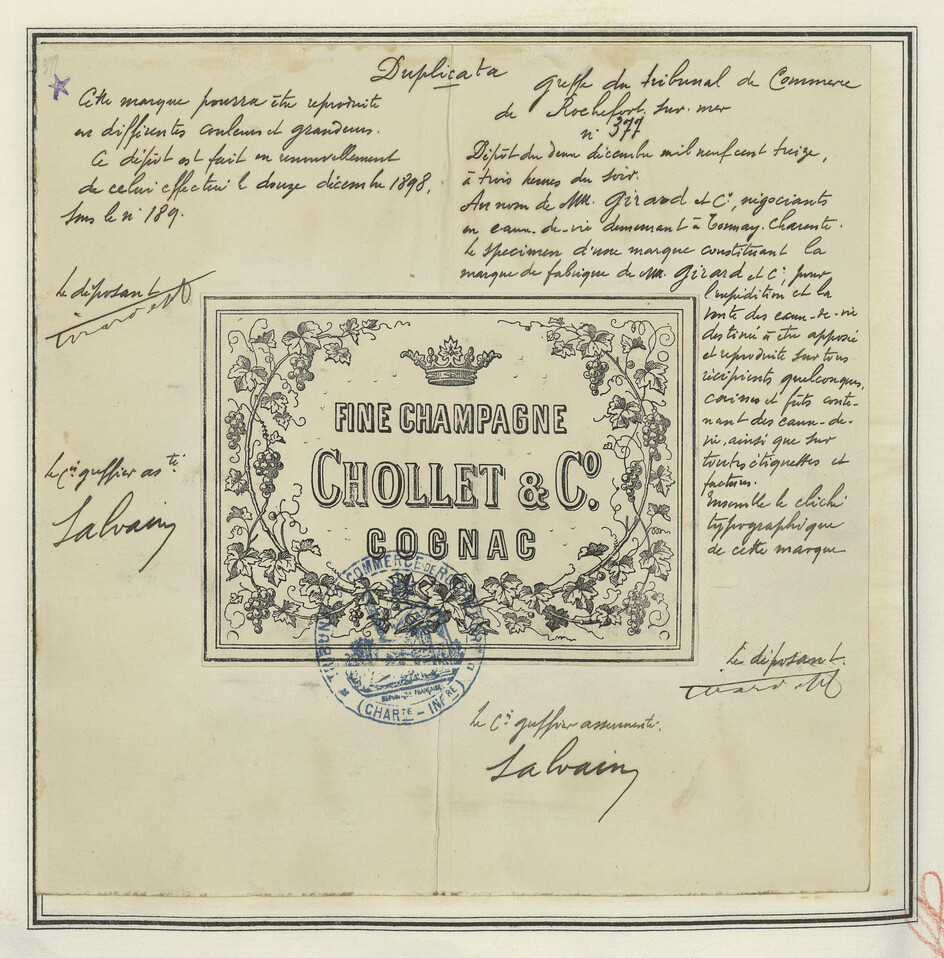 Duplicata
Cette marque pourra être reproduite
en différentes couleurs et grandeurs.
Ce dépôt est fait en renouvellement
de celui effectué le douze décembre 1898,
sous le n° 189.
Le déposant
Girard et Cº
Le Cis greffier as té
Salvain
Greffe du tribunal de Commerce
de Rochefort-sur-mer
n° 377
Dépôt du deux décembre mil neuf cent treize,
à trois heures du soir.
Au nom de MM. Girard et Cº, négociants
en eaux-de-vie demeurant à Tonnay-Charente.
Le specimen d'une marque constituant la
marque de fabrique de MM. Girard et Cº, pour
l'expédition et la
vente des eaux-de-vie
destinée à être apposée
et reproduite sur tous
récipients quelconques,
caisses et fûts conte-
nant des eaux-de-
vie, ainsi que sur
toutes étiquettes et
factures.
Ensemble le cliché
typographique
de cette marque
FINE CHAMPAGNE
CHOLLET & Cº.
COGNAC
TRIBUNAL DE COMMERCE DE ROCHEFORT
RÉPUBLIQUE FRANÇAISE
(CHARTE - INFRE)
Le déposant.
Girard et Cº
Le Cis greffier assermenté.
Salvain